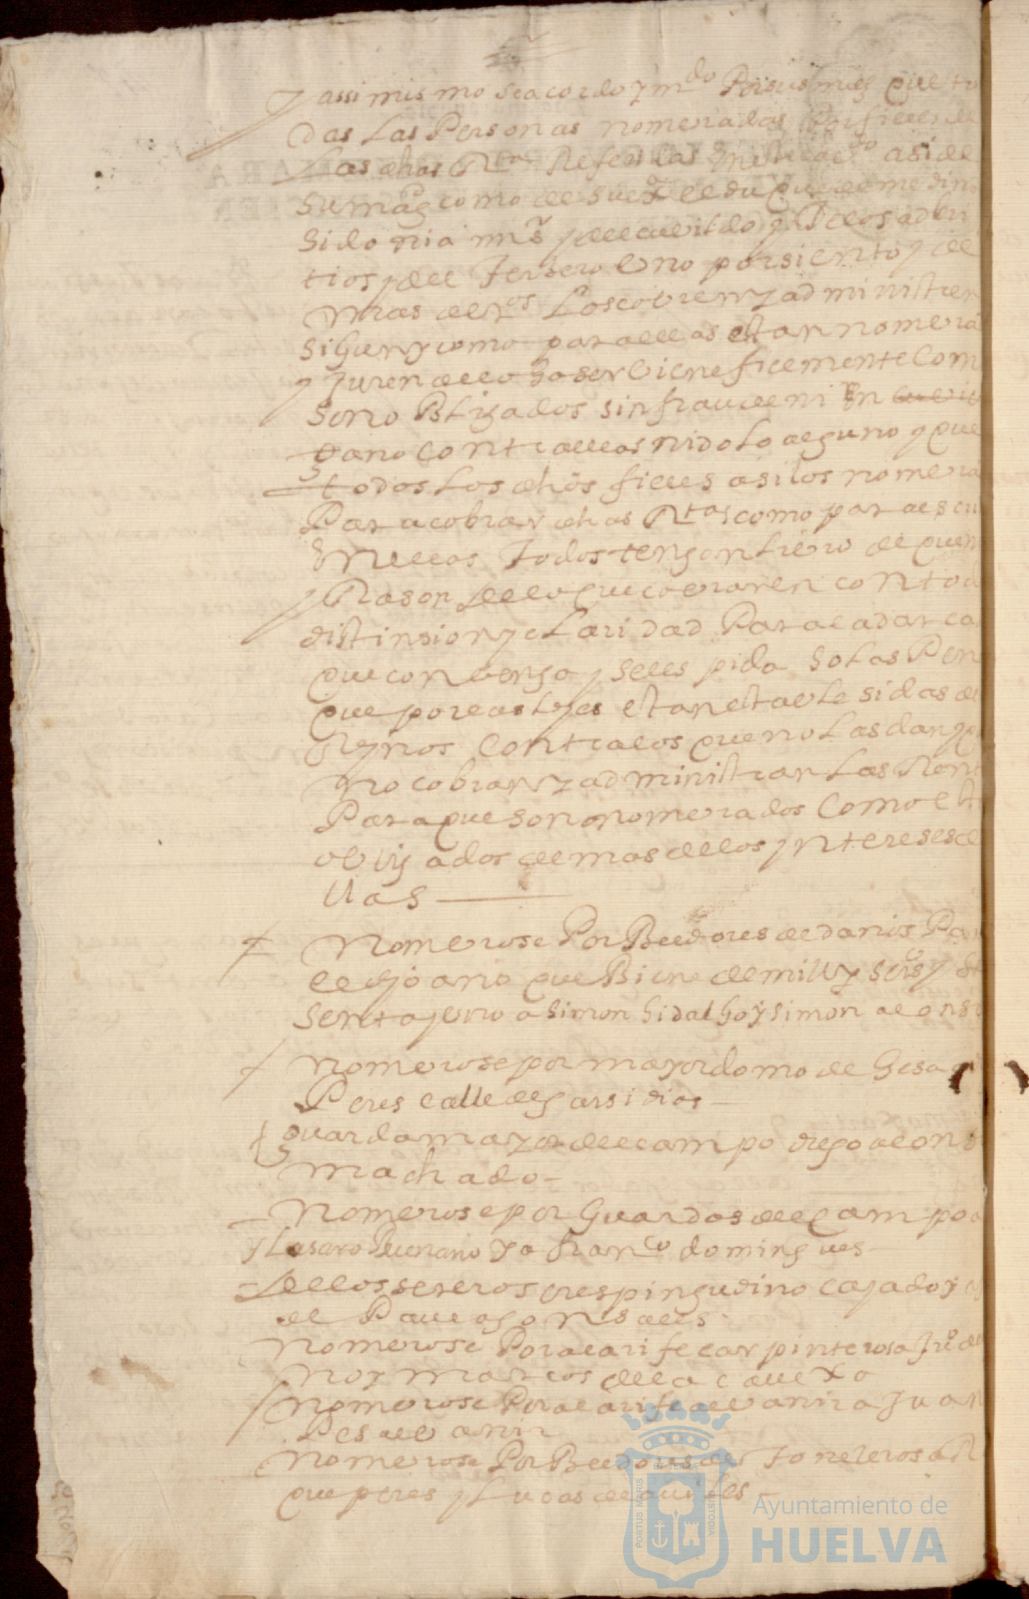 Y assimismo se acordo y mdo Por sus mds que to
das Las Personas nomeradas Por fieles de
Las dhas Rtas Reales
su magd como de su exa el duque de medina
sidonia mi sr y del cuerto y de los
tios y del Tersero Uno por siento y de
mas de Los cobren y administren
sigun y como para ellas estan nomera
y Juren de lo haser bien e fielmente Como
son oBligados sin fraude ni En
gano contra ellas ni dolo alguno y que
todos Los dhos fieles asi los nomera
Para cobrar dhas Rtas como para escri
En ellas Todos tengan Libro de quen
y Rason de lo que cobraren con toda
distinsion y claridad Para la dar ca
que convenga y se les pida so Las Pen
que por las Leyes estan establesidas de
Reynos Contra los que no Las dan y
no cobran y administran Las Ren
Para que son nomerados Como
obligados demas de los ynterese de
llas
Nomerose Por Beedores de danios Pa
el dho ano que Biene de mill y seis y se
senta y uno a simon hidalgo y simon alons
Nomerose por mayordomo de
Peres calle de garsidias
guarda mayor del campo diego alons
machado
Nomerose por Guardas del Campo a
y Lasaro Ya franco domingues
de los sereros crespin gudino cajado y
de Pablo gonsales
Nomerose Por alarife carpinteros a Juo de
no y marcos de la
Nomerose Por alarife de albanir a Juan
Pes albanir
Nomerose Por Beedores de Toneleros a
que peres y Lucas de
PORTUS MARIS
CUSTODIA
Ayuntamiento de
HUELVA